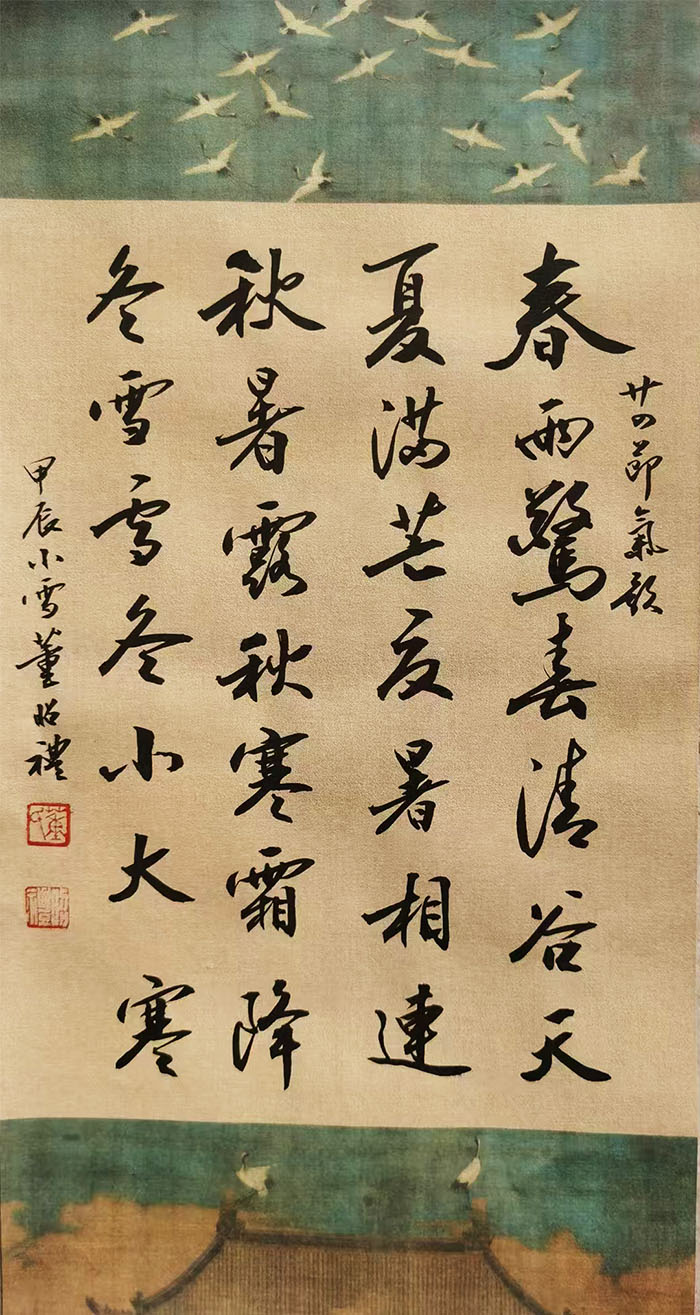 廿四節氣歌
春雨驚春清谷天
夏滿芒夏暑相連
秋暑露秋寒霜降
冬雪雪冬小大寒
甲辰小雪董昭禮